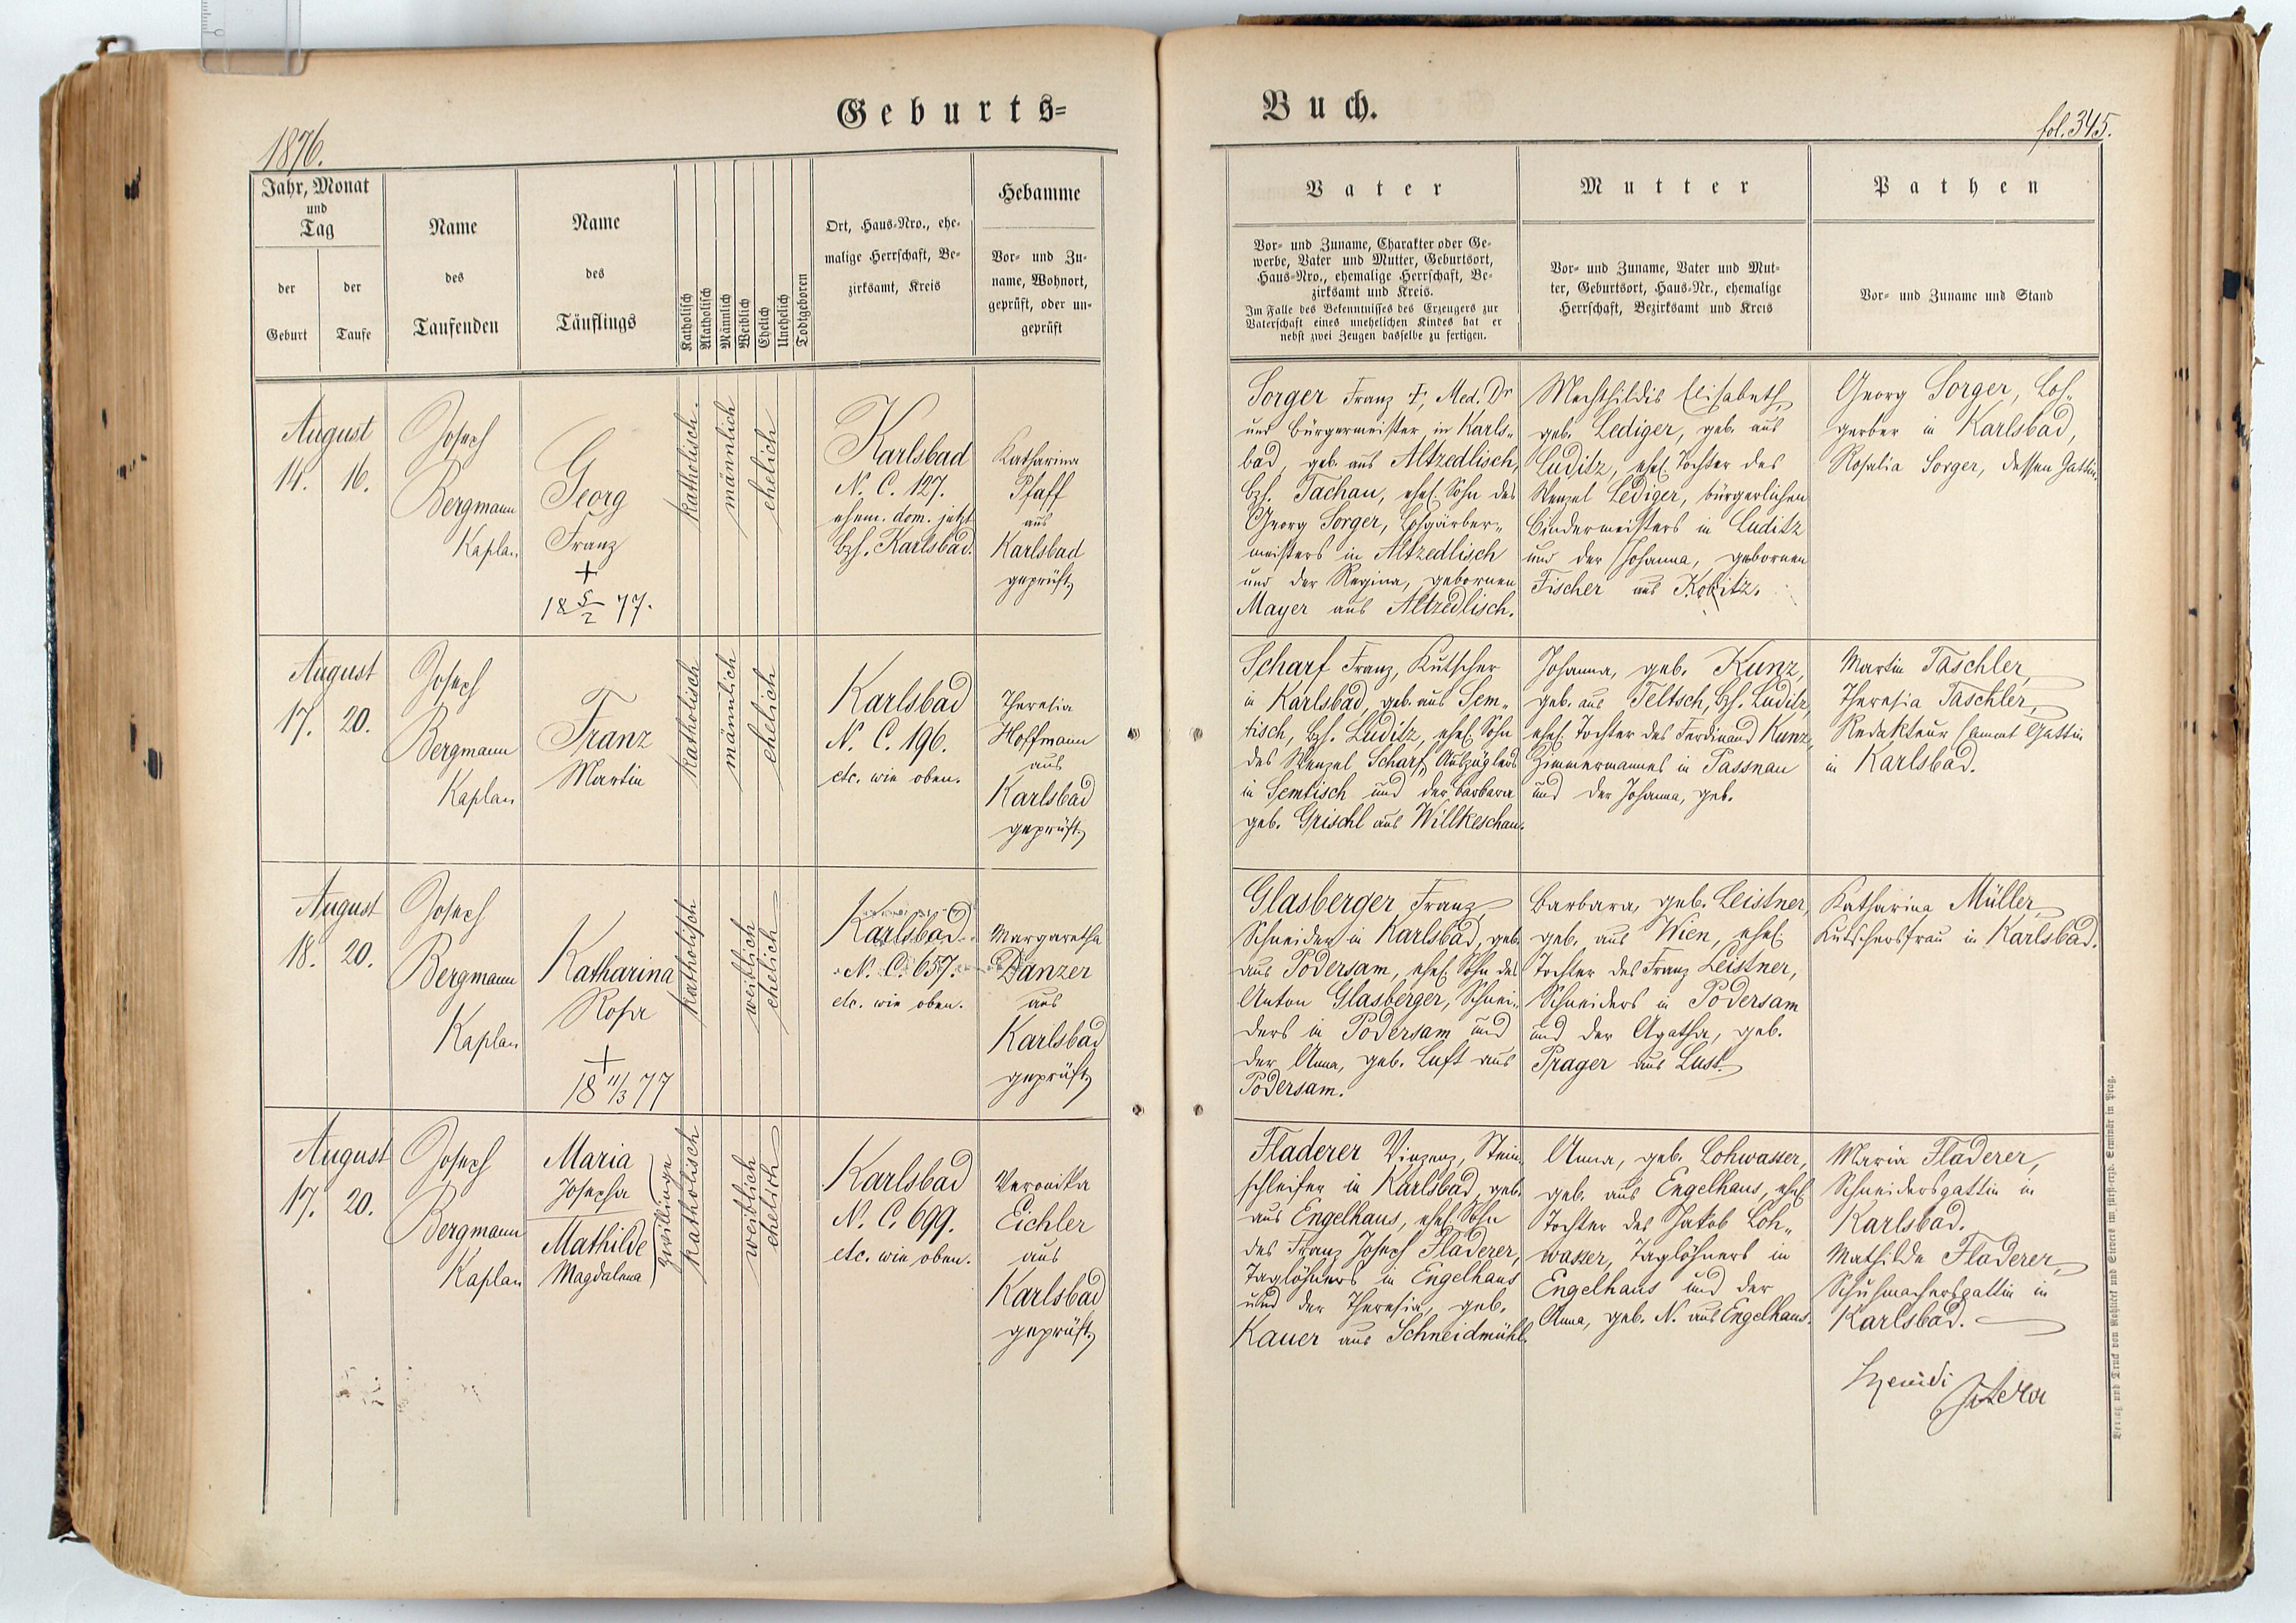 Geburts=
Buch.
1876.
fol. 345.
Jahr, Monat
und
Tag
der
Geburt
der
Taufe
Name
des
Taufenden
Name
des
Täuflings
Katholisch
Akatholisch
Männlich
Weiblich
Ehelich
Unehelich
Todtgeboren
Ort, Haus-Nro., ehe-
malige Herrschaft, Be-
zirksamt, Kreis
Hebamme
Vor- und Zu-
name, Wohnort,
geprüft, oder un-
geprüft
Vater
Vor- und Zuname, Charakter oder Ge-
werbe, Vater und Mutter, Geburtsort,
Haus-Nro., ehemalige Herrschaft, Be-
zirksamt und Kreis.
Im Falle des Bekenntnisses des Erzeugers zur
Vaterschaft eines unehelichen Kindes hat er
nebst zwei Zeugen dasselbe zu fertigen.
Mutter
Vor- und Zuname, Vater und Mut-
ter, Geburtsort, Haus-Nr., ehemalige
Herrschaft, Bezirksamt und Kreis
Pathen
Vor- und Zuname und Stand
August
14. 16.
Joseph
Bergmann
Kaplan
Georg
Franz
+
18 5/2 77.
katholisch.
männlich
ehelich
Karlsbad
N. C. 127.
ehem. dom. jetzt
bzh. Karlsbad.
Katharina
Pfaff
aus
Karlsbad
geprüft
Sorger Franz, Med. Dr
und Bürgermeister in Karls-
bad, geb. aus Altzedlisch,
bzh. Tachau, ehel. Sohn des
Georg Sorger, Lohgärber-
meisters in Altzedlisch
und der Regina, gebornen
Mayer aus Altzedlisch.
Mechthildis Elisabeth,
geb. Lediger, geb. aus
Luditz, ehel. Tochter des
Wenzel Lediger, bürgerlichen
Bindermeisters in Luditz
und der Johanna, gebornen
Fischer aus
Georg Sorger, Loh-
gerber in Karlsbad,
Rosalia Sorger, dessen Gattin.
August
17. 20.
Joseph
Bergmann
Kaplan
Franz
Martin
katholisch
männlich
ehelich
Karlsbad
N. C. 196.
etc. wie oben.
Theresia
Hoffmann
aus
Karlsbad
geprüft
Scharf Franz, Kutscher
in Karlsbad, geb. aus Sem-
tisch, bzh. Luditz, ehel. Sohn
des Wenzel Scharf, Auszüglers
in Semtisch und der Barbara
geb. Grischl aus Willkeschau.
Johanna, geb. Kunz,
geb. aus Teltsch, bzh. Luditz,
ehel. Tochter des Ferdinand Kunz,
Zimmermannes in Passnau
und der Johanna, geb.
Martin Taschler,
Theresia Taschler,
Redakteur sammt Gattin
in Karlsbad.
August
18. 20.
Joseph
Bergmann
Kaplan
Katharina
Rosa
+
18 11/3 77
katholisch
weiblich
ehelich
Karlsbad
N. C. 657.
etc. wie oben.
Margaretha
Danzer
aus
Karlsbad
geprüft
Glasberger Franz,
Schneider in Karlsbad, geb.
aus Podersam, ehel. Sohn des
Anton Glasberger, Schnei-
ders in Podersam und
der Anna, geb. Luft aus
Podersam.
Barbara, geb. Leistner,
geb. aus Wien, ehel.
Tochter des Franz Leistner,
Schneiders in Podersam
und der Agatha, geb.
Prager aus Lust.
Katharina Müller,
Kutschersfrau in Karlsbad.
August
17. 20.
Joseph
Bergmann
Kaplan
Maria
Josepha
Mathilde
Magdalena
Zwillinge
katholisch
weiblich
ehelich
Karlsbad
N. C. 699.
etc. wie oben.
Veronika
Eichler
aus
Karlsbad
geprüft
Fladerer Vinzenz, Stein-
schleifer in Karlsbad, geb.
aus Engelhaus, ehel. Sohn
des Franz Joseph Fladerer,
Taglöhners in Engelhaus
und der Theresia, geb.
Kauer aus Schneidmühl.
Anna, geb. Lohwasser,
geb. aus Engelhaus, ehel.
Tochter des Jakob Loh-
wasser, Taglöhners in
Engelhaus und der
Anna, geb. N. aus Engelhaus.
Maria Fladerer,
Schneidersgattin in
Karlsbad.
Mathilde Fladerer,
Schuhmachersgattin in
Karlsbad.
Verlag und Druck von Rohliček und Sievers im fürsterzb. Seminär in Prag.